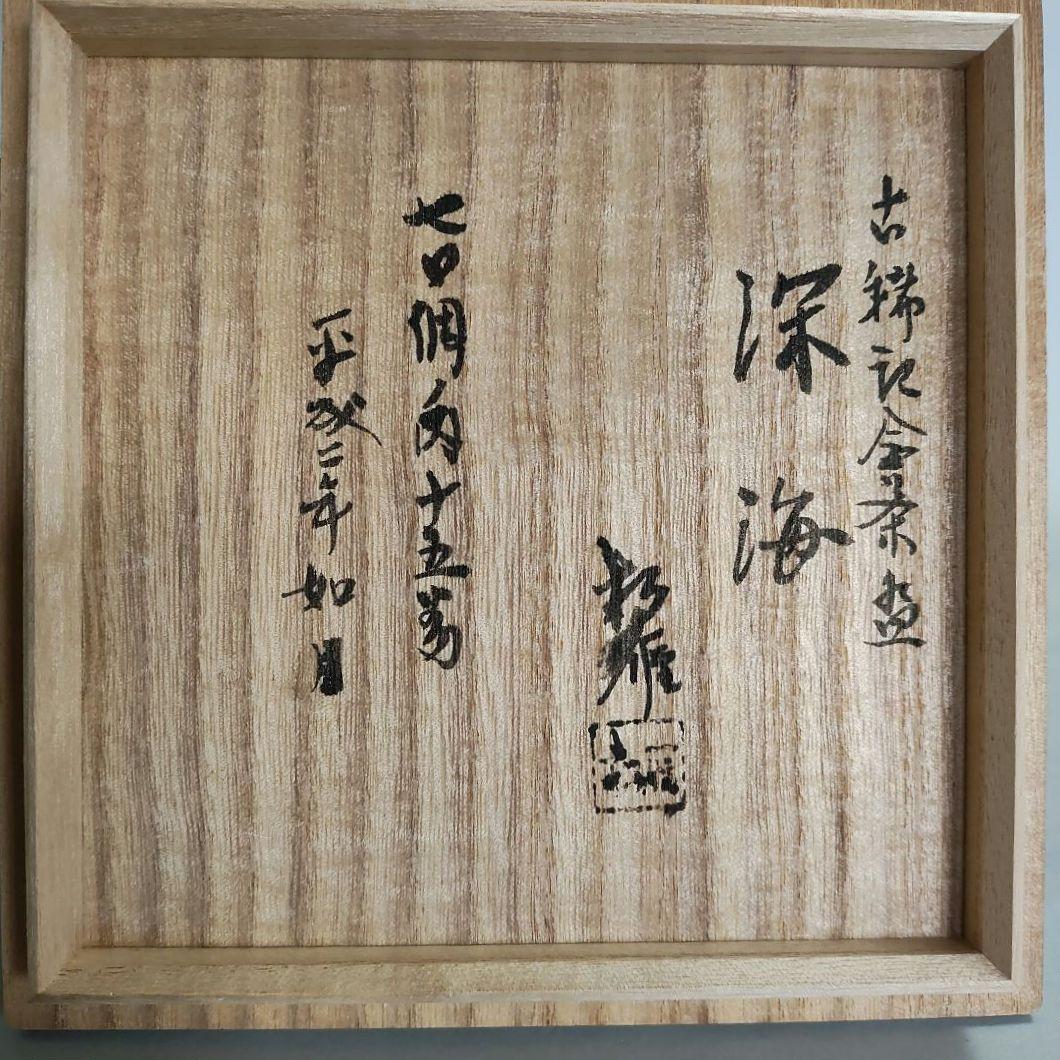 古稀記念茶盌
深海
七〇個内十五番
平成二年如月